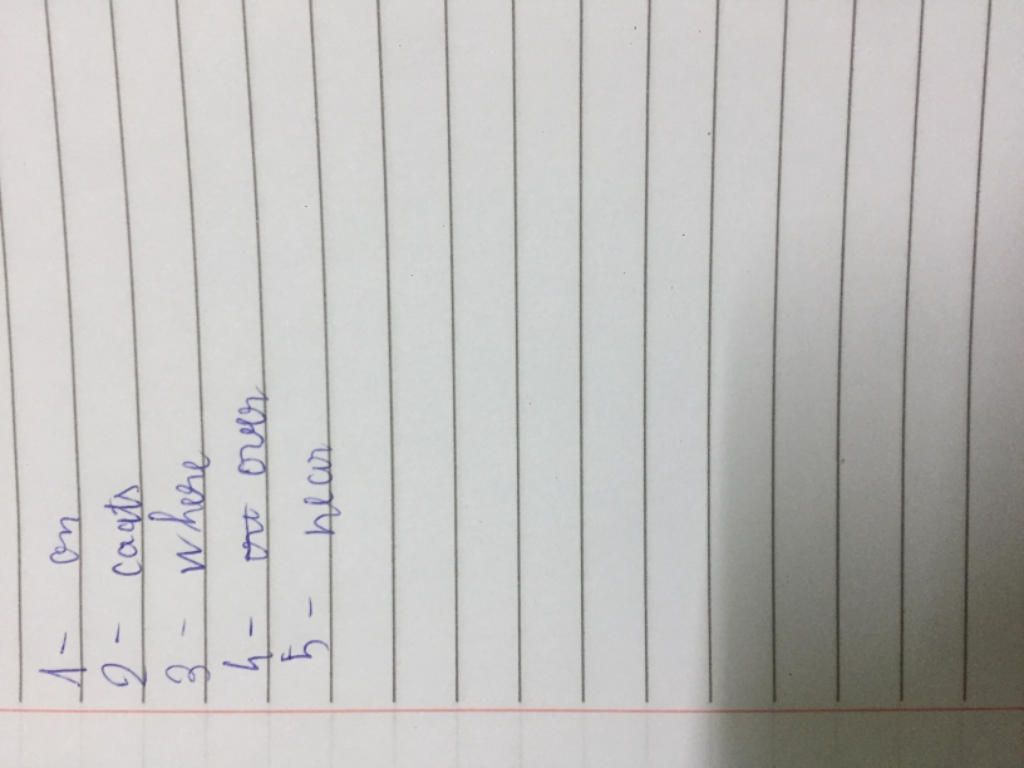 1- on
2- caats
3- where
4- over
5- near